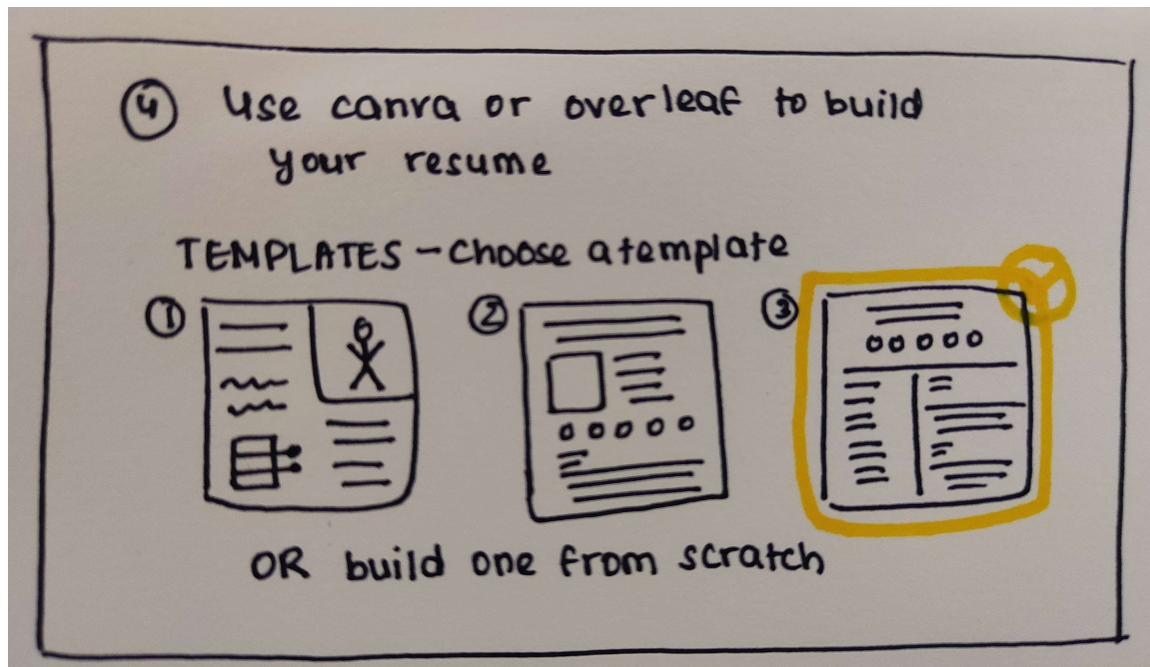 4 Use canva or overleaf to build
your resume
TEMPLATES - Choose a template
1 2 3
OR build one from scratch